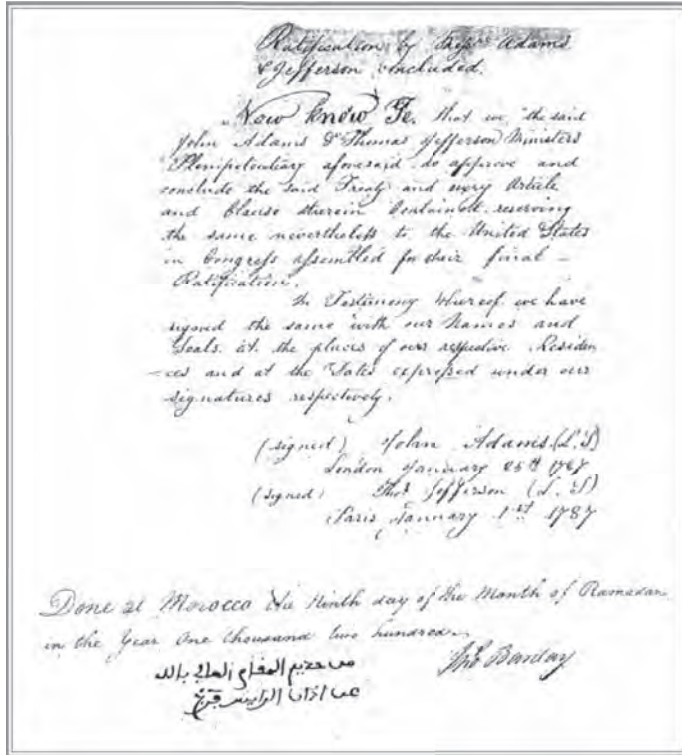 Ratification by Messrs Adams
& Jefferson concluded.
Now know Ye, that we, the said
John Adams & Thomas Jefferson Ministers
Plenipotentiary aforesaid do approve and
conclude the said Treaty and every Article
and Clause therein Contained, reserving
the same nevertheless to the United States
in Congress assembled for their final
Ratification.
In Testimony whereof we have
signed the same with our Names and
Seals, at the places of our respective Residen
=ces and at the Dates expressed under our
signatures respectively.
(signed) John Adams (L. S)
London January 25th 1787
(signed) Thos Jefferson (L. S)
Paris January 1st 1787
Done at Morocco the Ninth day of the Month of Ramadan
in the Year One thousand two hundred.
Barclay